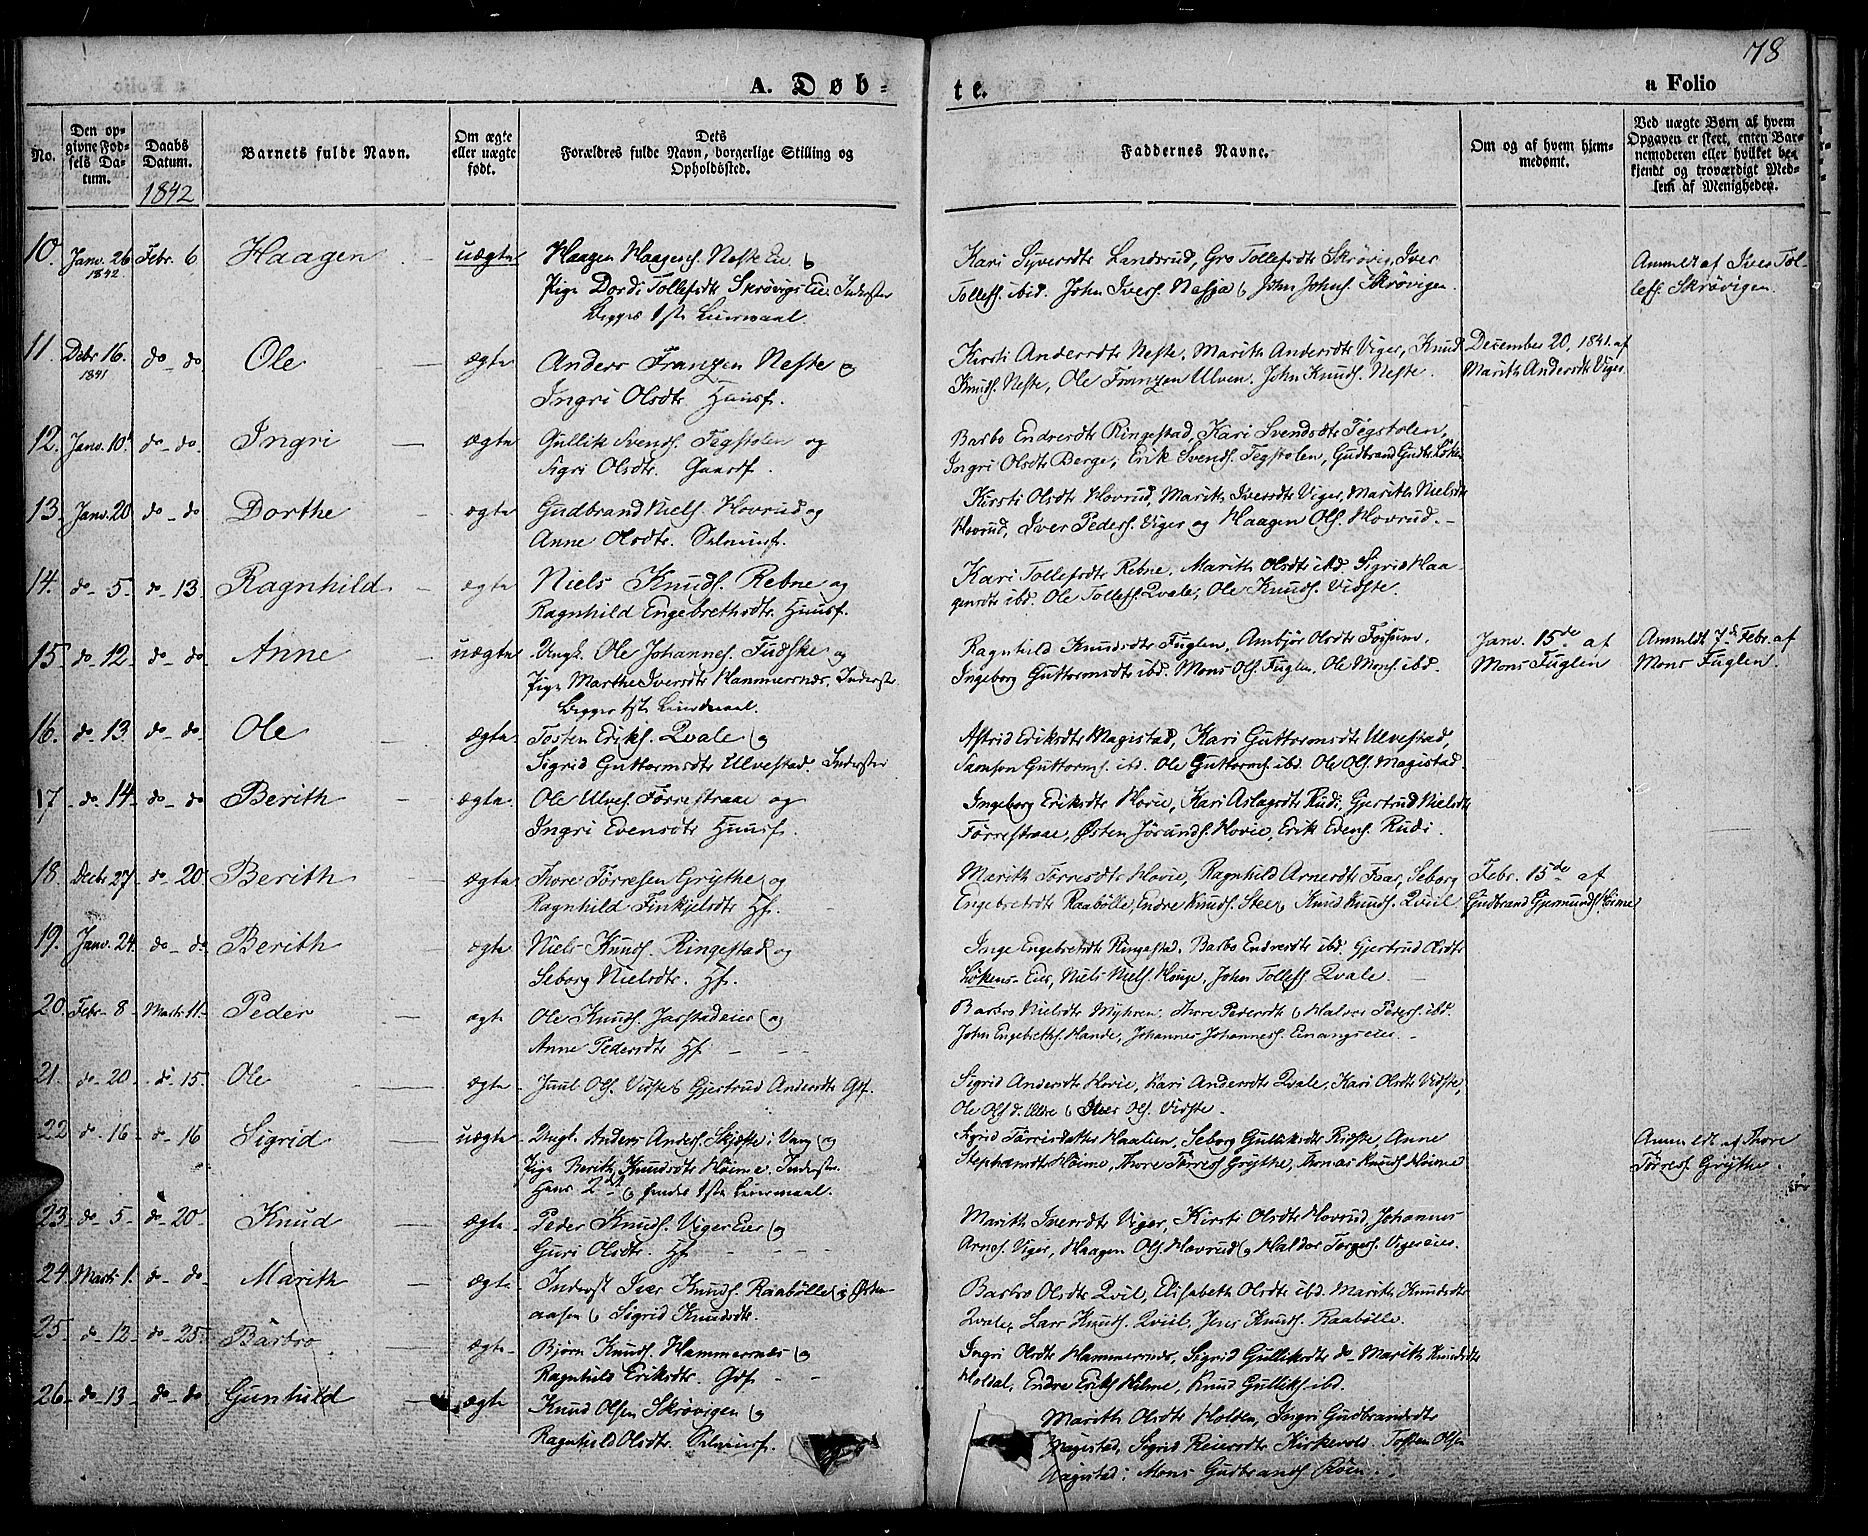 78
A. Døb-
te.
a Folio
No.
Den op-
givne Fød-
sels Da-
tum.
Daabs
Datum.
1842
Barnets fulde Navn.
Om ægte
eller uægte
født.
Dets
Forældres fulde Navn, borgerlige Stilling og
Opholdssted.
Faddernes Navne.
Om og af hvem hjem-
medømt.
Ved uægte Børn af hvem
Opgaven er skeet, enten Bar-
nemoderen eller hvilket be-
kjendt og troværdigt Med-
lem af Menigheden.
10. Janv. 26 Febr. 6 Haagen uægte Haagen Haagens. Neste Eie &
1842
Pige Dordi Tollefsdtr Skrøvigs Eie. Inderster
Begges 1ste Leiermaal.
Kari Syversdtr Landsrud, Gro Tollefsdtr Skrøvig, Iver
Tollefs. ibid. John Ivers. Nesja & John Johns. Skrøvigen.
Anmeldt af Iver Tol-
lefs. Skrøvigen.
11. Debr 16. do do Ole ægte Anders Franzen Neste &
1841
Ingri Olsdtr. Huusf.
Kirsti Andersdtr Neste, Marith Andersdtr Viger, Knud
Knuds. Neste, Ole Franzen Ulven. John Knuds. Neste.
December 20, 1841. af
Marith Andersdtr Viger
12. Janv. 10 do - do. Ingri ægte Gullik Svends. Tegstolen og
Sigri Olsdtr. Gaardf.
Barbo Endresdtr Ringestad, Kari Svendsdtr Tegstolen,
Ingri Olsdtr Berge, Erik Svends. Tegstolen, Gudbrand Gudbr. Løken
13. Janv. 20 do - do Dorthe ægte Gudbrand Niels. Hovrud og
Anne Olsdtr. Selveierf.
Kirsti Olsdtr Hovrud, Marith Iversdtr Viger, Marith Nielsdtr
Hovrud, Iver Peders. Viger og Haagen Ols. Hovrud.
14. do - 5 do - 13 Ragnhild ægte Niels Knuds. Rebne og
Ragnhild Engebrethsdtr. Huusf.
Kari Tollefsdtr Rebne. Marith Olsdtr ibd. Sigrid Haa-
gensdtr ibd. Ole Tollefs. Qvale, Ole Knuds. Vidste.
15. do 12 do - do Anne uægte Ungk. Ole Johannes. Fudske og
Pige Marthe Iversdtr Hammernæs, Inderster
Begges 1ste Leiermaal.
Ragnhild Knudsdtr Fuglen, Ambjør Olsdtr Fossum,
Ingeborg Guttormsdtr ibd. Mons Ols. Fuglen, Ole Mons. ibd.
Janv. 15de af
Mons Fuglen
Anmeldt 7de Febr. af
Mons Fuglen.
16. do - 13 do do Ole ægte Tosten Eriks. Qvale &
Sigrid Guttormsdtr Ulvestad. Inderster
Astrid Eriksdtr Magistad, Kari Guttormsdtr Ulvestad,
Samson Guttorms. ibd. Ole Guttorms. ibd. Ole Ols. Magistad.
17 do 14 do - do Berith ægte Ole Ulves. Førrestraae og
Ingri Evensdtr Huusf.
Ingeborg Eriksdtr Hovie, Kari Aslagsdtr Rudi, Gjertrud Nielsdtr
Førrestraae, Østen Jørunds. Hovie, Erik Edens. Rudi.
18. Decbr 27 do - 20 Berith ægte Thore Tørresen Grythe og
Ragnhild Finkjelsdtr Hf.
Marith Tørresdtr Hovie, Ragnhild Arnesdtr Faar, Seborg
Engebretsdtr Raabølle, Endre Knuds. Steer, Knud Knuds. Qviil
Febr. 15de af
Gudbrand Gjermunds. Høime
19. Janv. 24. do - do Berith ægte Niels Knuds. Ringestad og
Seborg Nielsdtr. Hf.
Inge Engebretsdtr Ringestad. Barbo Endresdtr ibd. Gjertrud Olsdtr
Løkens-Eier, Niels Niels. Houge, John Tollefs. Qvale.
20. Febr. 8 Marts 11 Peder ægte Ole Knuds. Jarstadeier & og
Anne Pedersdtr Hf.
Barbro Nielsdtr Myhren, Thore Pedersdtr & Halvor Peders. ibd.
John Engebreths. Hande, Johannes Johanness. Einangseier.
21. do - 20 do 15. Ole ægte Juul Ols. Vidste & Gjertrud Andersdtr Gf.
Sigrid Andersdtr Hovie, Kari Andersdtr Qvale, Kari Olsdtr Vidste,
Ole Ols. & Iver Ols. Vidste.
22 do - 16 do - 16 Sigrid uægte Ungk. Anders Anders. Skjæske i Vang &
Pige Berith Knudsdtr Høime. Inderster.
Hans 2det & hendes 1ste Leiermaal.
Sigrid Tørrisdatter Haalien, Seborg Gulliksdtr Ridste, Anne
Stephansdtr Høime, Thore Tørres. Grythe, Thomas Knuds. Høime
Anmeldt af Thore
Tørres. Grythe.
23 do - 5 do - 20 Knud ægte Peder Knuds. Viger Eier &
Guri Olsdtr. Hf.
Marith Iversdtr Viger, Kirsti Olsdtr Hovrud, Johannes
Arnes. Viger, Haagen Ols. Hovrud & Haldor Torges. Vigereier.
24. Marts 1. do - do Marith ægte Inderst Iver Knuds. Raabølle i Østen
aasen & Sigrid Knudsdtr.
Barbro Olsdtr Qvil, Elisabeth Olsdtr ibd. Marith Knudsdtr
Qvale, Lars Knuds. Qviil, Jens Knuds. Raabølle.
25 do - 12 do - 25 Barbro ægte Bjørn Knuds. Hammernæs &
Ragnhild Eriksdtr. Gdf.
Ingri Olsdtr Hammernæs, Sigrid Gulliksdtr do - Marith Knudsdtr
Holdal, Endre Eriks. Hilme, Knud Gulliks. ibd.
26 do - 13 do - do Gunhild ægte Knud Olsen Skrøvigen &
Ragnhild Olsdtr. Selveierf.
Marith Olsdtr Holden, Ingri Gudbrandsdtr
Magistad, Sigrid Reiersdtr Kirkevold. Tosten Olsen
Magistad, Mons Gudbrands. Røen.